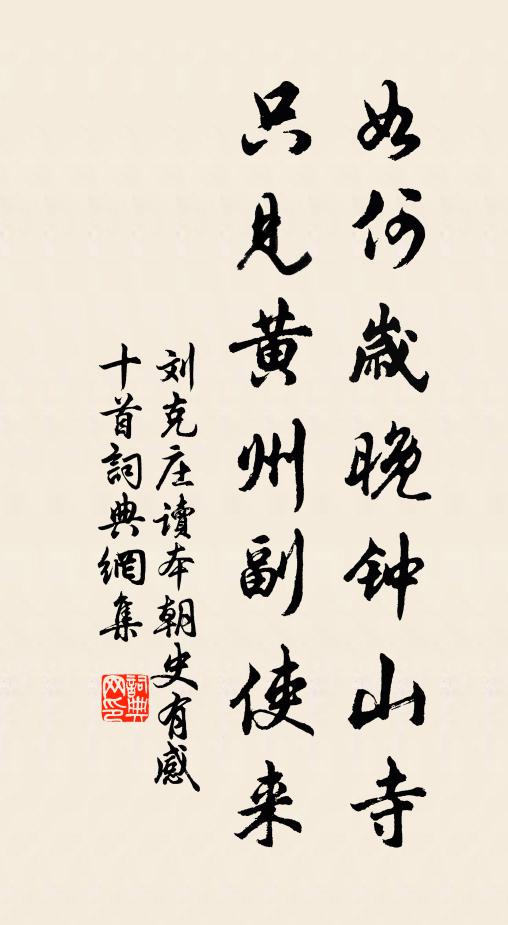 如何歳晚钟山寺
只見黄州副使来
刘克庄讀本朝史有感
十首詞典網集
詞典
网印